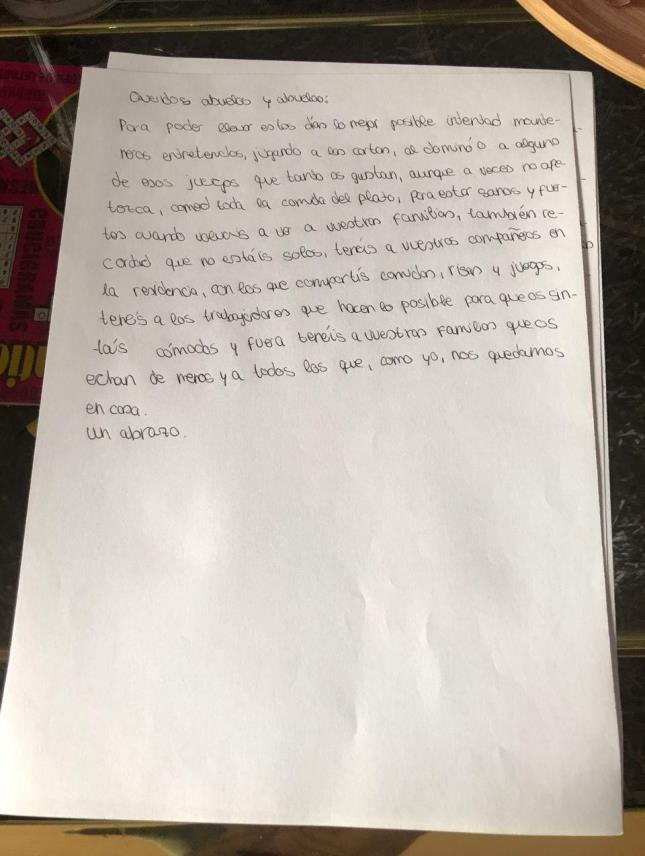 Queridos abuelos y abuelas:
Para poder llevar estos días lo mejor posible intentad mante-
neros entretenidos, jugando a las cartas, al dominó o a alguno
de esos juegos que tanto os gustan, aunque a veces no ape-
tezca, comed toda la comida del plato, para estar sanos y fuer-
tes cuando volvais a ver a vuestras familias, también re-
cordad que no estáis solos, tenéis a vuestros compañeros en
la residencia, con los que compartís comidas, risas y juegos,
teneis a los trabajadores que hacen lo posible para que os sin-
tais cómodos y fuera teneis a vuestras familias que os
echan de menos y a todos los que, como yo, nos quedamos
en casa.
Un abrazo.
CRUCIGRAMAS